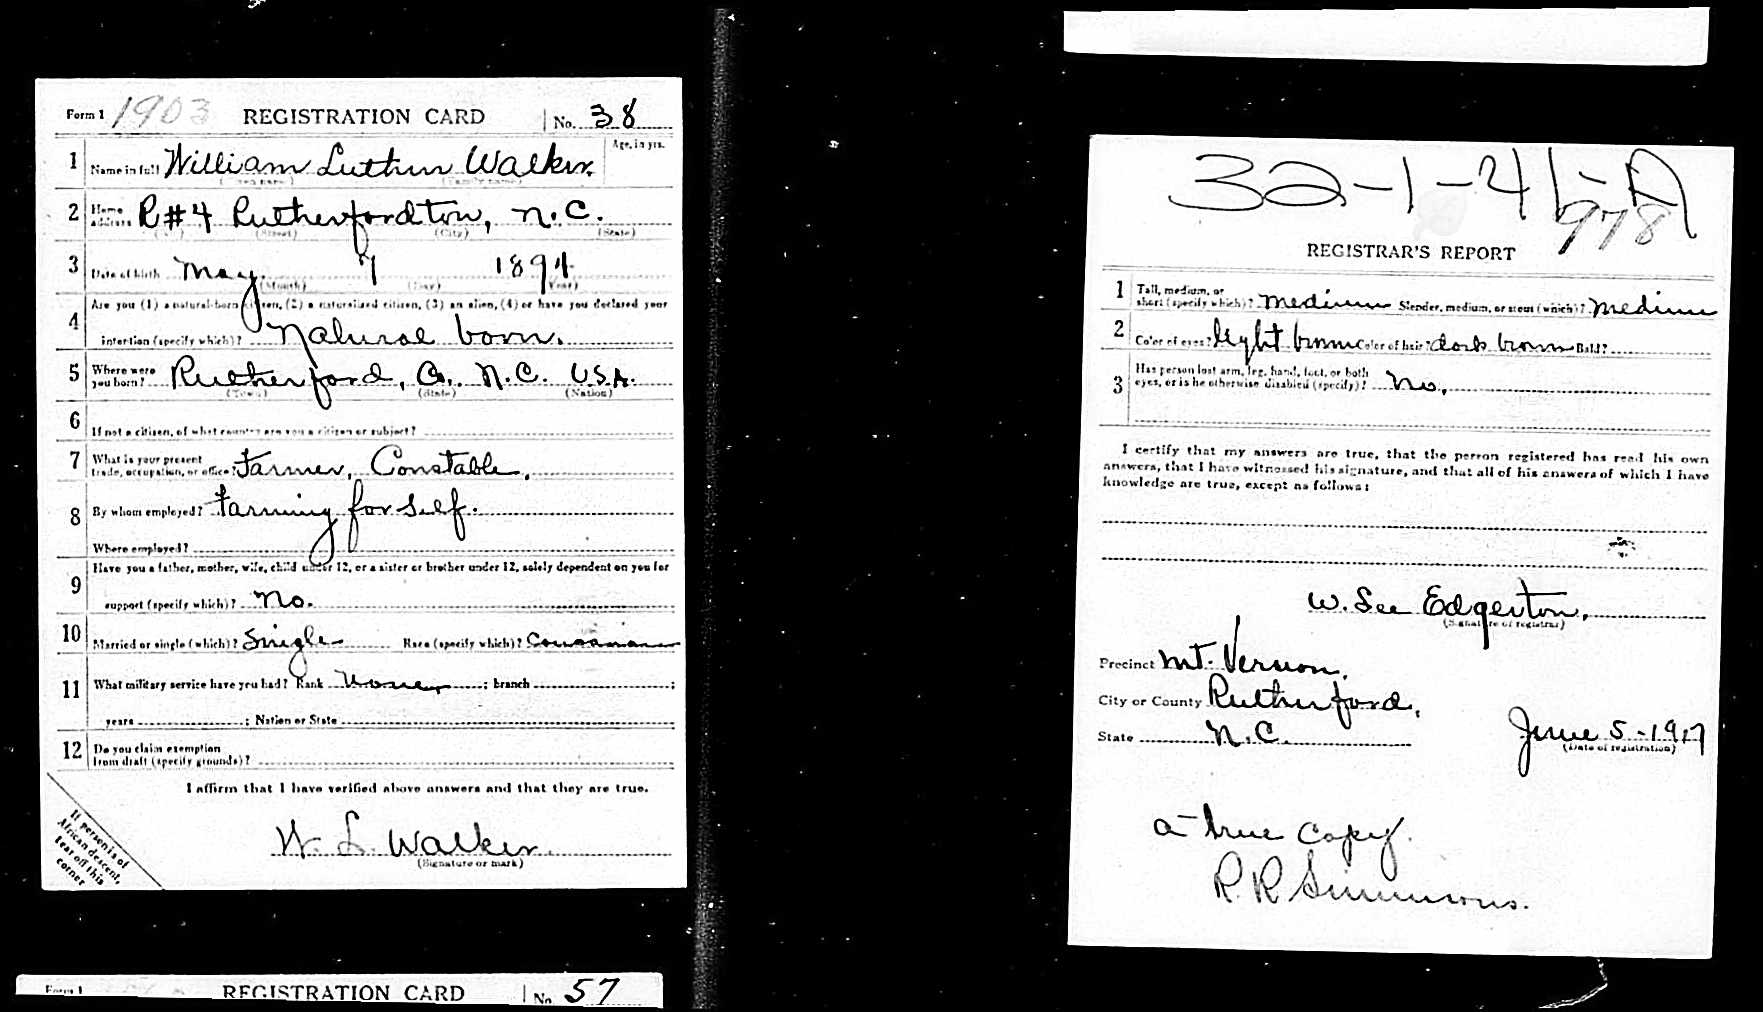 Form 1 1903 REGISTRATION CARD No. 38
Age, in yrs.
1 Name in full William Luther Walker.
(Given name) (Family name)
2 Home address R#4 Rutherfordton, N.C.
(No.) (Street) (City) (State)
3 Date of birth May 7 1894
(Month) (Day) (Year)
Are you (1) a natural-born citizen, (2) a naturalized citizen, (3) an alien, (4) or have you declared your
4 intention (specify which)? Natural born.
5 Where were you born? Rutherford, Co., N.C. U.S.A.
(Town) (State) (Nation)
6 If not a citizen, of what country are you a citizen or subject?
7 What is your present trade, occupation, or office? Farmer, Constable,
8 By whom employed? Farming for self.
Where employed?
Have you a father, mother, wife, child under 12, or a sister or brother under 12, solely dependent on you for
9 support (specify which)? No.
10 Married or single (which)? Single Race (specify which)? Caucasian
11 What military service have you had? Rank None, ; branch ;
years ; Nation or State
12 Do you claim exemption from draft (specify grounds)?
I affirm that I have verified above answers and that they are true.
W. L. Walker.
(Signature or mark)
If person is of
African descent,
tear off this
corner
Form 1 REGISTRATION CARD No. 57
32-1-41-A
978
REGISTRAR'S REPORT
1 Tall, medium, or short (specify which)? Medium Slender, medium, or stout (which)? Medium
2 Color of eyes? light brown Color of hair? dark brown Bald?
3 Has person lost arm, leg, hand, foot, or both eyes, or is he otherwise disabled (specify)? No,
I certify that my answers are true, that the person registered has read his own
answers, that I have witnessed his signature, and that all of his answers of which I have
knowledge are true, except as follows:
W. Lee Edgerton,
(Signature of registrar)
Precinct Mt. Vernon,
City or County Rutherford,
State N.C. June 5-1917
(Date of registration)
a true copy.
R.R. Simmons.